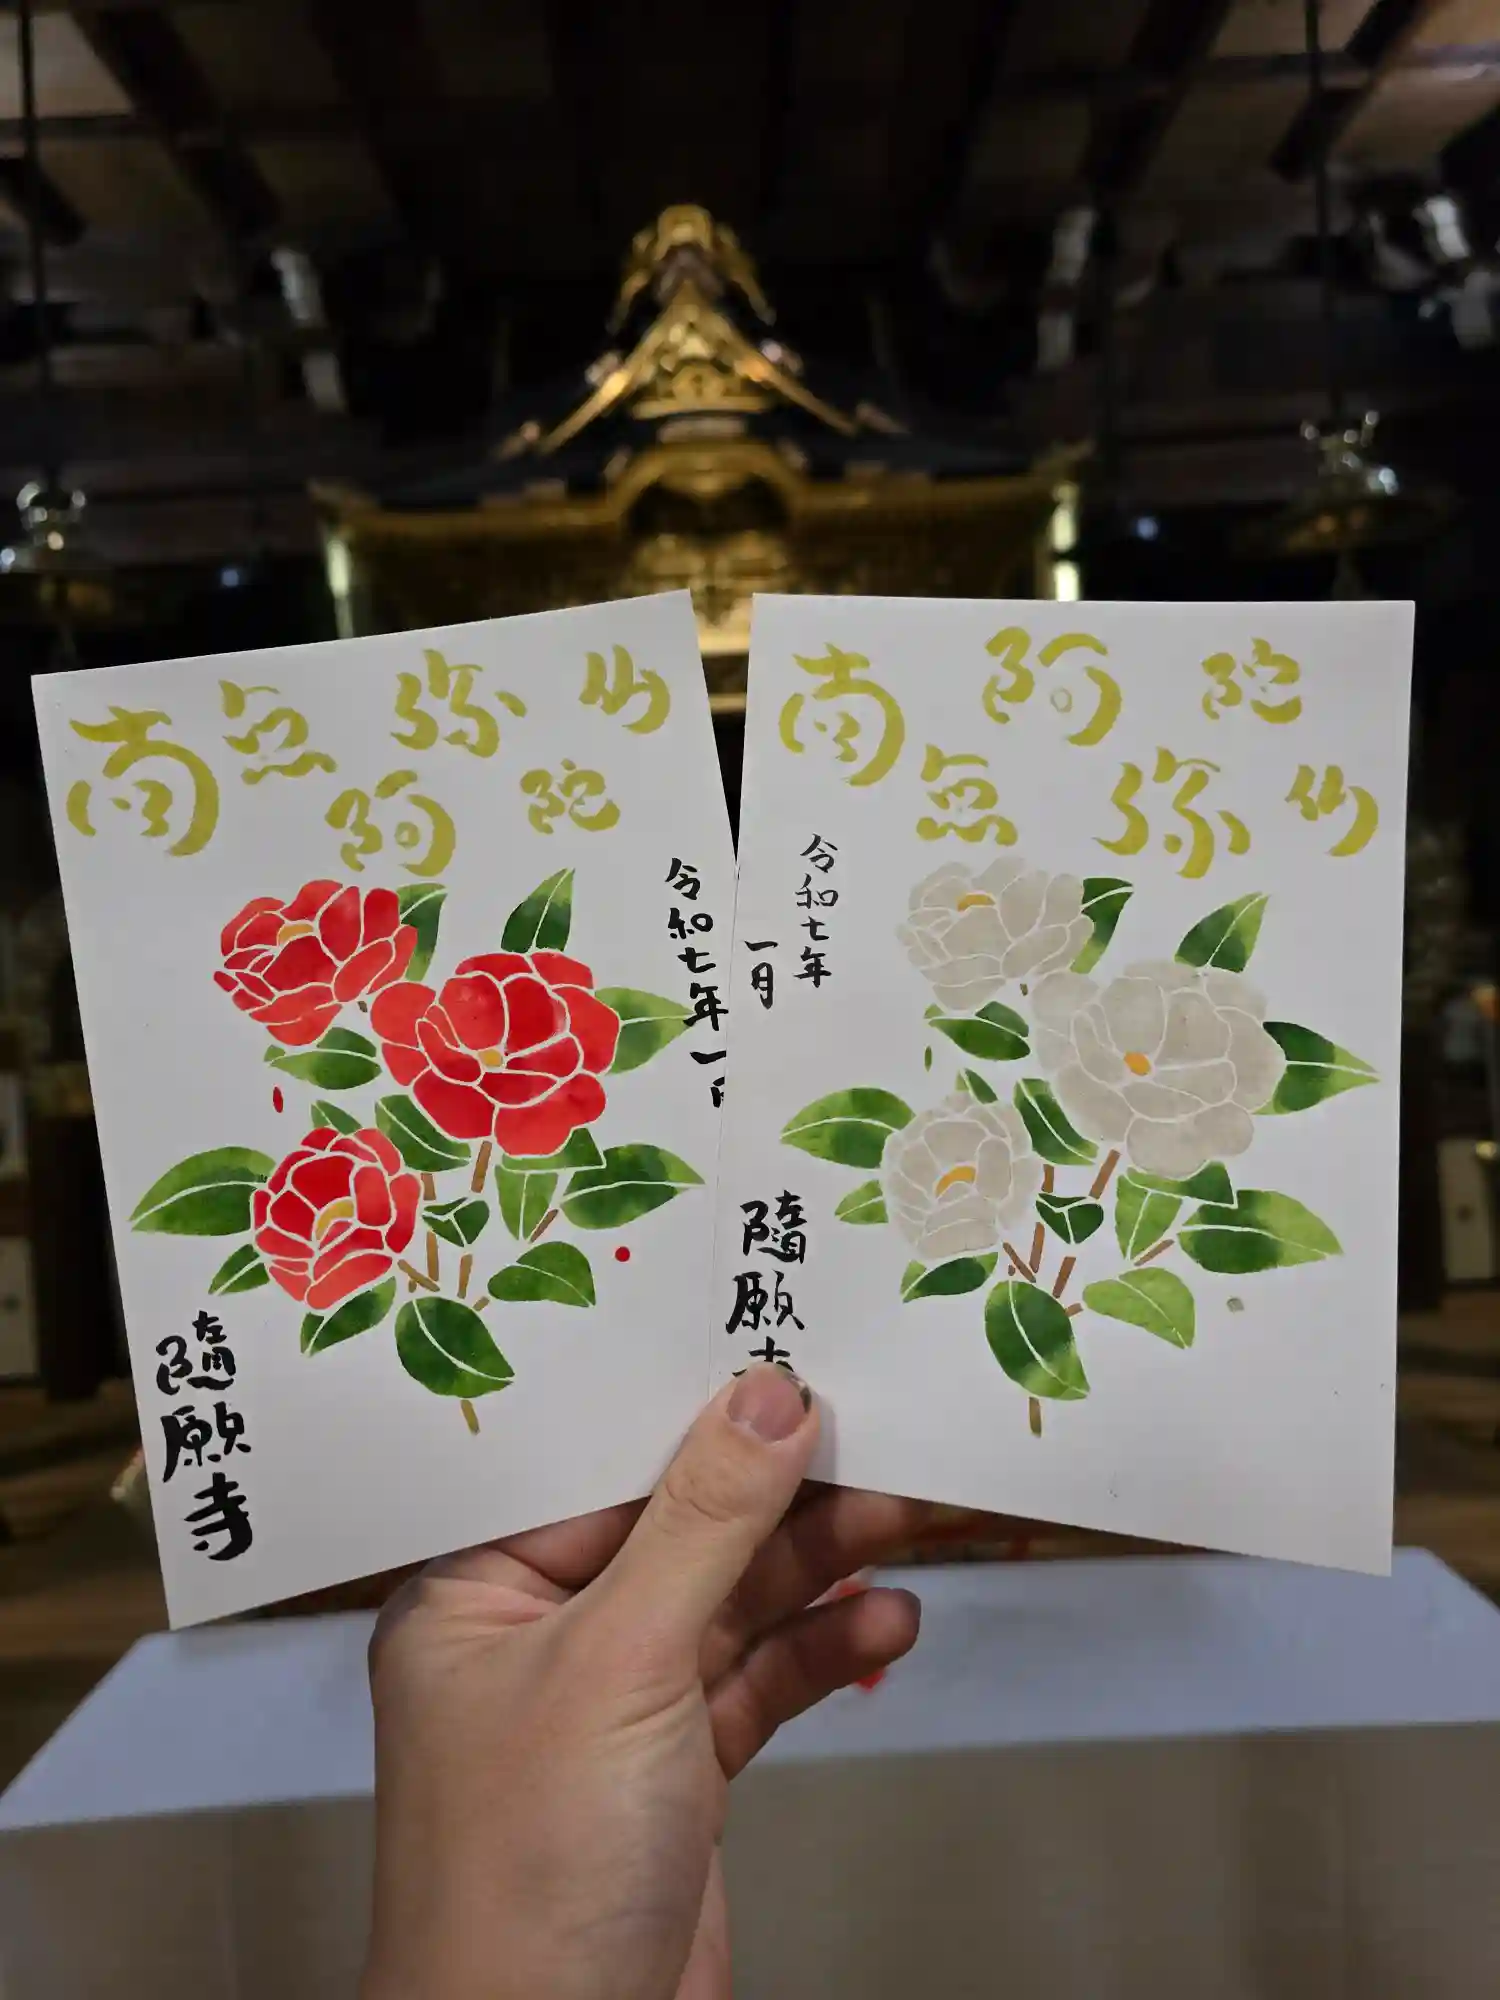 南無阿弥陀仏
令和七年一月
隨願寺
南無阿弥陀仏
令和七年
一月
隨願寺